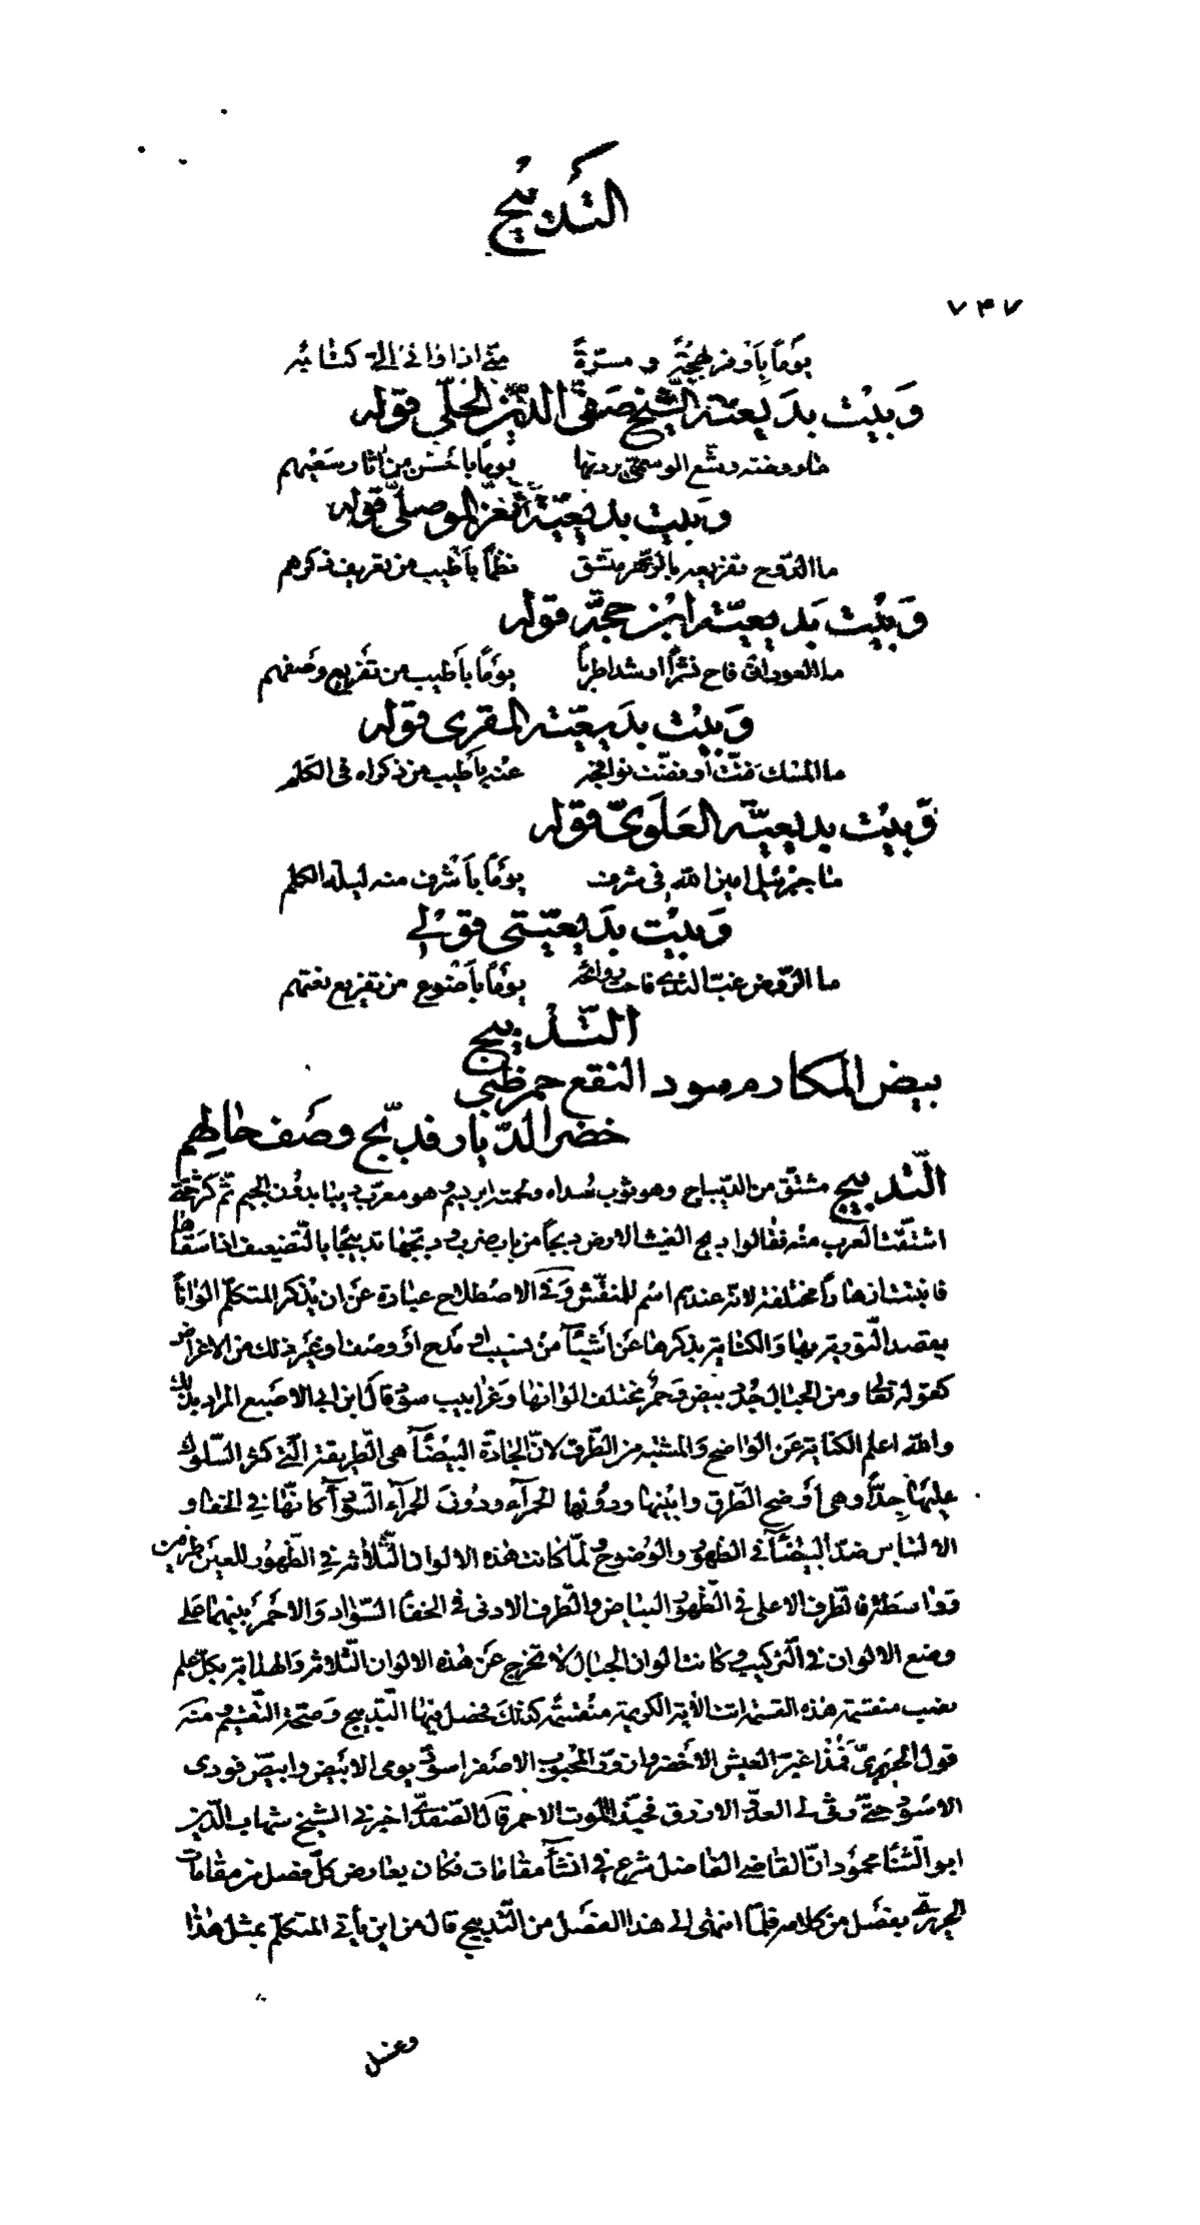 التدبيج
٧٣٧
يوماً بأوفر بهجة ومسرة منى اذا وافى الى كتابه
وبيت بديعية الشيخ صفى الدين الحلى قوله
ما روضة وشع الوسمى بردتها يوما باحسن من اثار سعيهم
وبيت بديعية العز الموصلى قوله
ما الدوح تفريعه بالزهر متسق نظماً بأطيب من تعريف ذكرهم
وبيت بديعية ابن حجة قوله
ما العود ان فاح نشراً او شدا طرباً يوماً بأطيب من تفريع وصفهم
وبيت بديعية المقرى قوله
ما المسك فتت أو فضت نوافجه عنه بأطيب من ذكراه فى الكلم
وبيت بديعية العلوى قوله
ما جبرئيل امين الله فى شرف يوماً بأشرف منه ليلة الكلم
وبيت بديعيتى قولى
ما الروض غب الندى فاحت روائحه يوماً بأضوع من تفريع نعتهم
التدبيج
بيض المكارم سود النقع حمر ظبى
خضر الديار فدبج وصف حالهم
التدبيج مشتق من الديباج وهو ثوب سداه ولحمته ابريسم وهو معرب ديبا بدون الجيم ثم كثر حتى
اشتقت العرب منه فقالوا دبج الغيث الارض دبجاً من باب ضرب ودبجها تدبيجا بالتضعيف اذا سقاها
فانبتت ازهاراً مختلفة لانه عندهم اسم للمنقش وفى الاصطلاح عبارة عن ان يذكر المتكلم الواناً
يقصد التورية بها والكناية بذكرها عن أشيآء من نسيب او مدح أو وصف او غير ذلك من الاغراض
كقوله تعالى ومن الجبال جدد بيض وحمر مختلف الوانها وغرابيب سود قال ابن ابى الاصبع المراد بذلك
والله اعلم الكناية عن الواضح والمشتبه من الطرق لان الجادة البيضآء هى الطريقة التى كثر السلوك
عليها جداً وهى أوضح الطرق وابينها ودونها الحمرآء ودون الحمرآء السودآء كانها فى الخفاء و
الالتباس ضد البيضآء فى الظهور والوضوح ولما كانت هذه الالوان الثلاثة فى الظهور للعين طرفين
وواسطة فالطرف الاعلى فى الظهور البياض والطرف الادنى فى الخفآء السواد والاحمر بينهما على
وضع الالوان فى التركيب وكانت الوان الجبال لا تخرج عن هذه الالوان الثلاثة والهداية بكل علم
نصب منقسمة هذه القسمة اتت الآية الكريمة منقسمة كذلك فحصل فيها التدبيج وصحة التقسيم ومنه
قول الحريرى فمذ اغبر العيش الأخضر وازور المحبوب الاصفر اسود يومى الابيض وابيض فودى
الاسود حتى رثى لى العدو الازرق فحبذا الموت الاحمر قال الصفدى اخبرنى الشيخ شهاب الدين
ابو الثنا محمود ان القاضى الفاضل شرع فى انشآء مقامات فكان يعارض كل فصل من مقامات
الحريرى بفصل من كلامه فلما انتهى الى هذا الفصل من التدبيج قال من اين يأتى المتكلم بمثل هذا